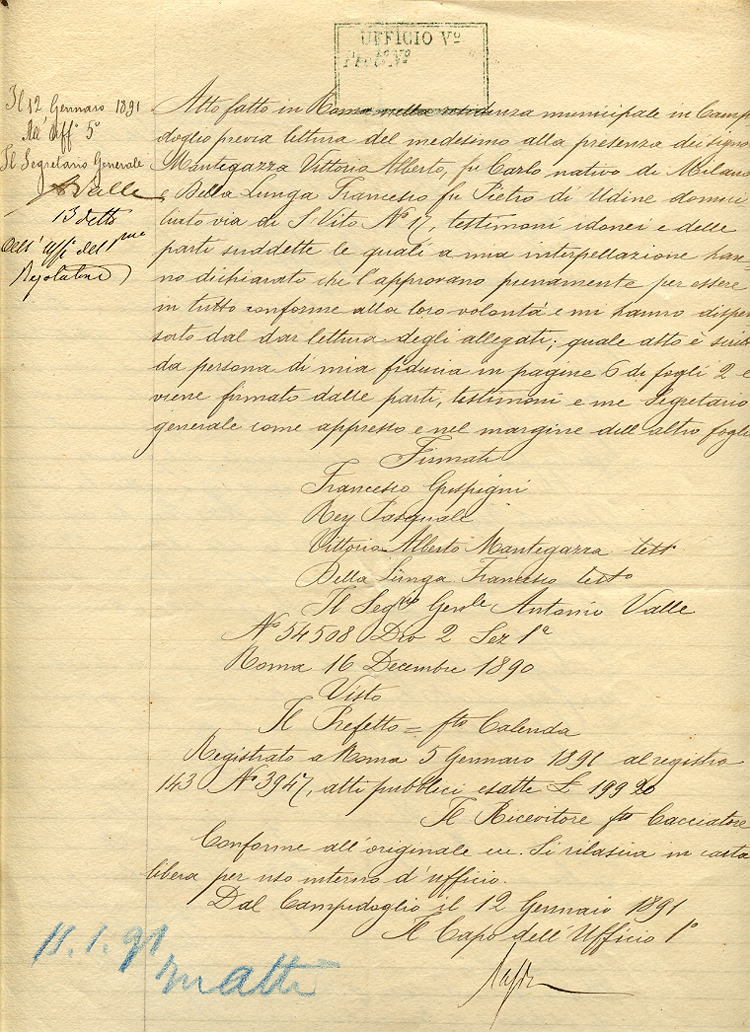 UFFICIO Vº
Il 12 Gennaro 1891
All' Uff° 5°
Il Segretario Generale
AValle
13 detto
Dell' Uffi del
Atto fatto in Roma nella residenza municipale in Camp
doglio previa lettura del medesimo alla presenza dei signo
Mantegazza Vittorio Alberto, fu Carlo nativo di Milano
e Della Lunga Francesco fu Pietro di Udine domici
liato via di S Vito N° 17, testimoni idonei e delle
parti suddette le quali a mia interpellazione han
no dichiarato che l'approvano pienamente per essere
in tutto conforme alla loro volontà e mi hanno dispen
sato dal dar lettura degli allegati; quale atto è scrit
da persona di mia fiducia in pagine 6 di fogli 2 e
viene firmato dalle parti, testimoni e me Segretario
generale come appresso e nel margine dell altro foglio
Firmati
Francesco
Rey Pasquale
Vittorio Alberto Mantegazza test
Della Lunga Francesco testo
Il Segrio Gerale Antonio Valle
N° 54508 Div 2 Sez 1a
Roma 16 Decembre 1890
Visto
Il Prefetto = fto Calenda
Registrato a Roma 5 Gennaro 1891 al registro
143 N° 3947, atti pubblici esatte L 199 20
Il Ricevitore fto Cacciatore
Conforme all'originale ecc. Si rilascia in carta
libera per uso interno d'ufficio.
Dal Campidoglio il 12 Gennaro 1891
Il Capo dell'Ufficio 1°
11.1.91